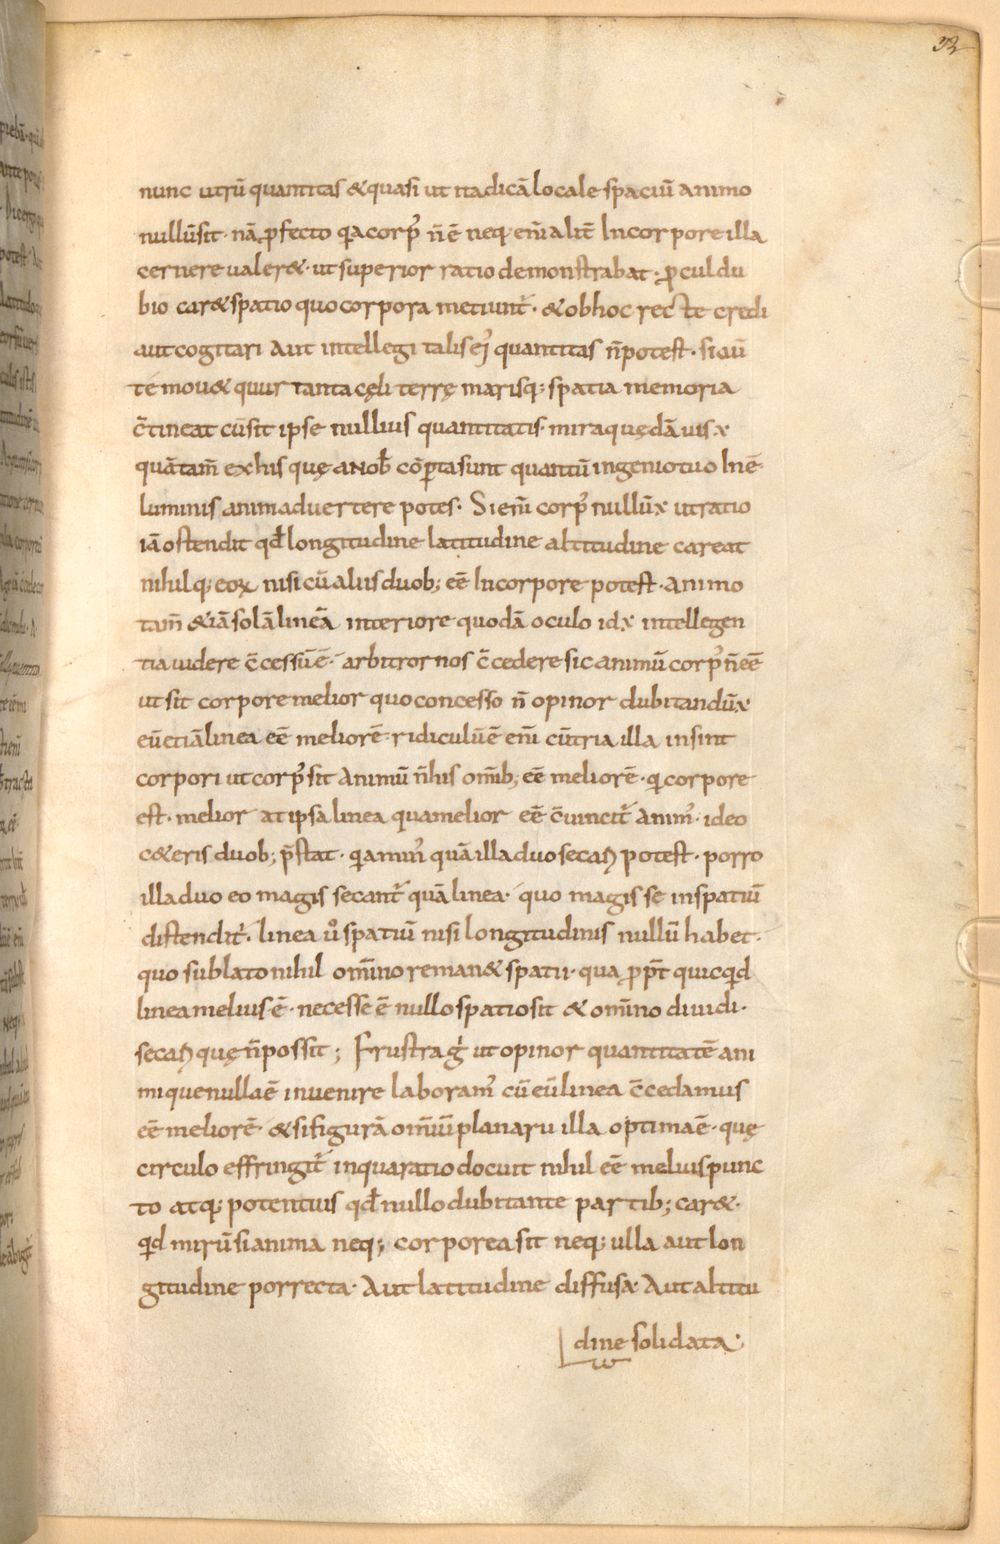 32
nunc utrū quantitas &quasi ut itadicā locale spaciū animo
nullūsit · nā ꝓfecto q̇a corpꝰ n̄ ē neq· em̄ aliť Incorpore illa
cernere valer& · ut superior ratio demonstrabat · ꝓculdu
bio car& spatio quo corpora metiunť · & ob hoc recte credi
aut cogitari aut intellegi talis eiꝰ quantitas n̄ potest · si aū
te mou& quur tanta cęli terrę marisq; spatia memoria
c̄tineat cū sit ipse nullius quantitatis · mira quędā vis ÷
quātam̄ ex his quę a nob̄ cōꝑta sunt quantū ingenio tuo Inē
luminis animaduertere potes · Si em̄ corpꝰ nullū ÷ ut ratio
iā ostendit qđ longitudine latitudine altitudine careat
nihilq; eoꝝ nisi cū aliis duob; eē Incorpore potest · animo
tam̄ &iā solā lineā interiore quodā oculo id ÷ intellegen
tia videre c̄cessū ē · arbitror nos c̄cedere sic animū corpꝰ n̄ eē
ut sit corpore melior quo concesso n̄ opinor dubitandū ÷
eū etiā linea eē meliorē · ridiculū ē em̄ cū tria illa insint
corpori ut corpꝰ sit animū n̄ his om̄ib; eē meliorē · qi corpore
est · melior at ipsa linea qua melior eē c̄vinciť animꝰ · ideo
c&eris duob; p̄stat · q̇a minꝰ quā illa duo secari potest · porro
illa duo eo magis secanť quā linea · quo magis se in spatiū
distendiť · linea ů spatiū nisi longitudinis nullū habet ·
quo sublato nihil om̄ino reman& spatii · qua ꝓpt̄ quicq̇d
linea melius ē · necesse ē nullo spatio sit & om̄ino dividi ·
secariquę n̄ possit ; Frustra g̓ ut opinor quantitatē ani
mi que nulla ē invenire laboramꝰ cū eū linea c̄cedamus
eē meliorē · & si figurā om̄iū planaru illa optima ē · quę
circulo effringiť inqua ratio docuit nihil eē melius punc
to atq; potentius qđ nullo dubitante partib; car& ·
q̇d mirū si anima neq; corporea sit neq; ulla aut lon
gitudine porrecta · Aut latitudine diffusa · Aut altitu
dine solidata ·